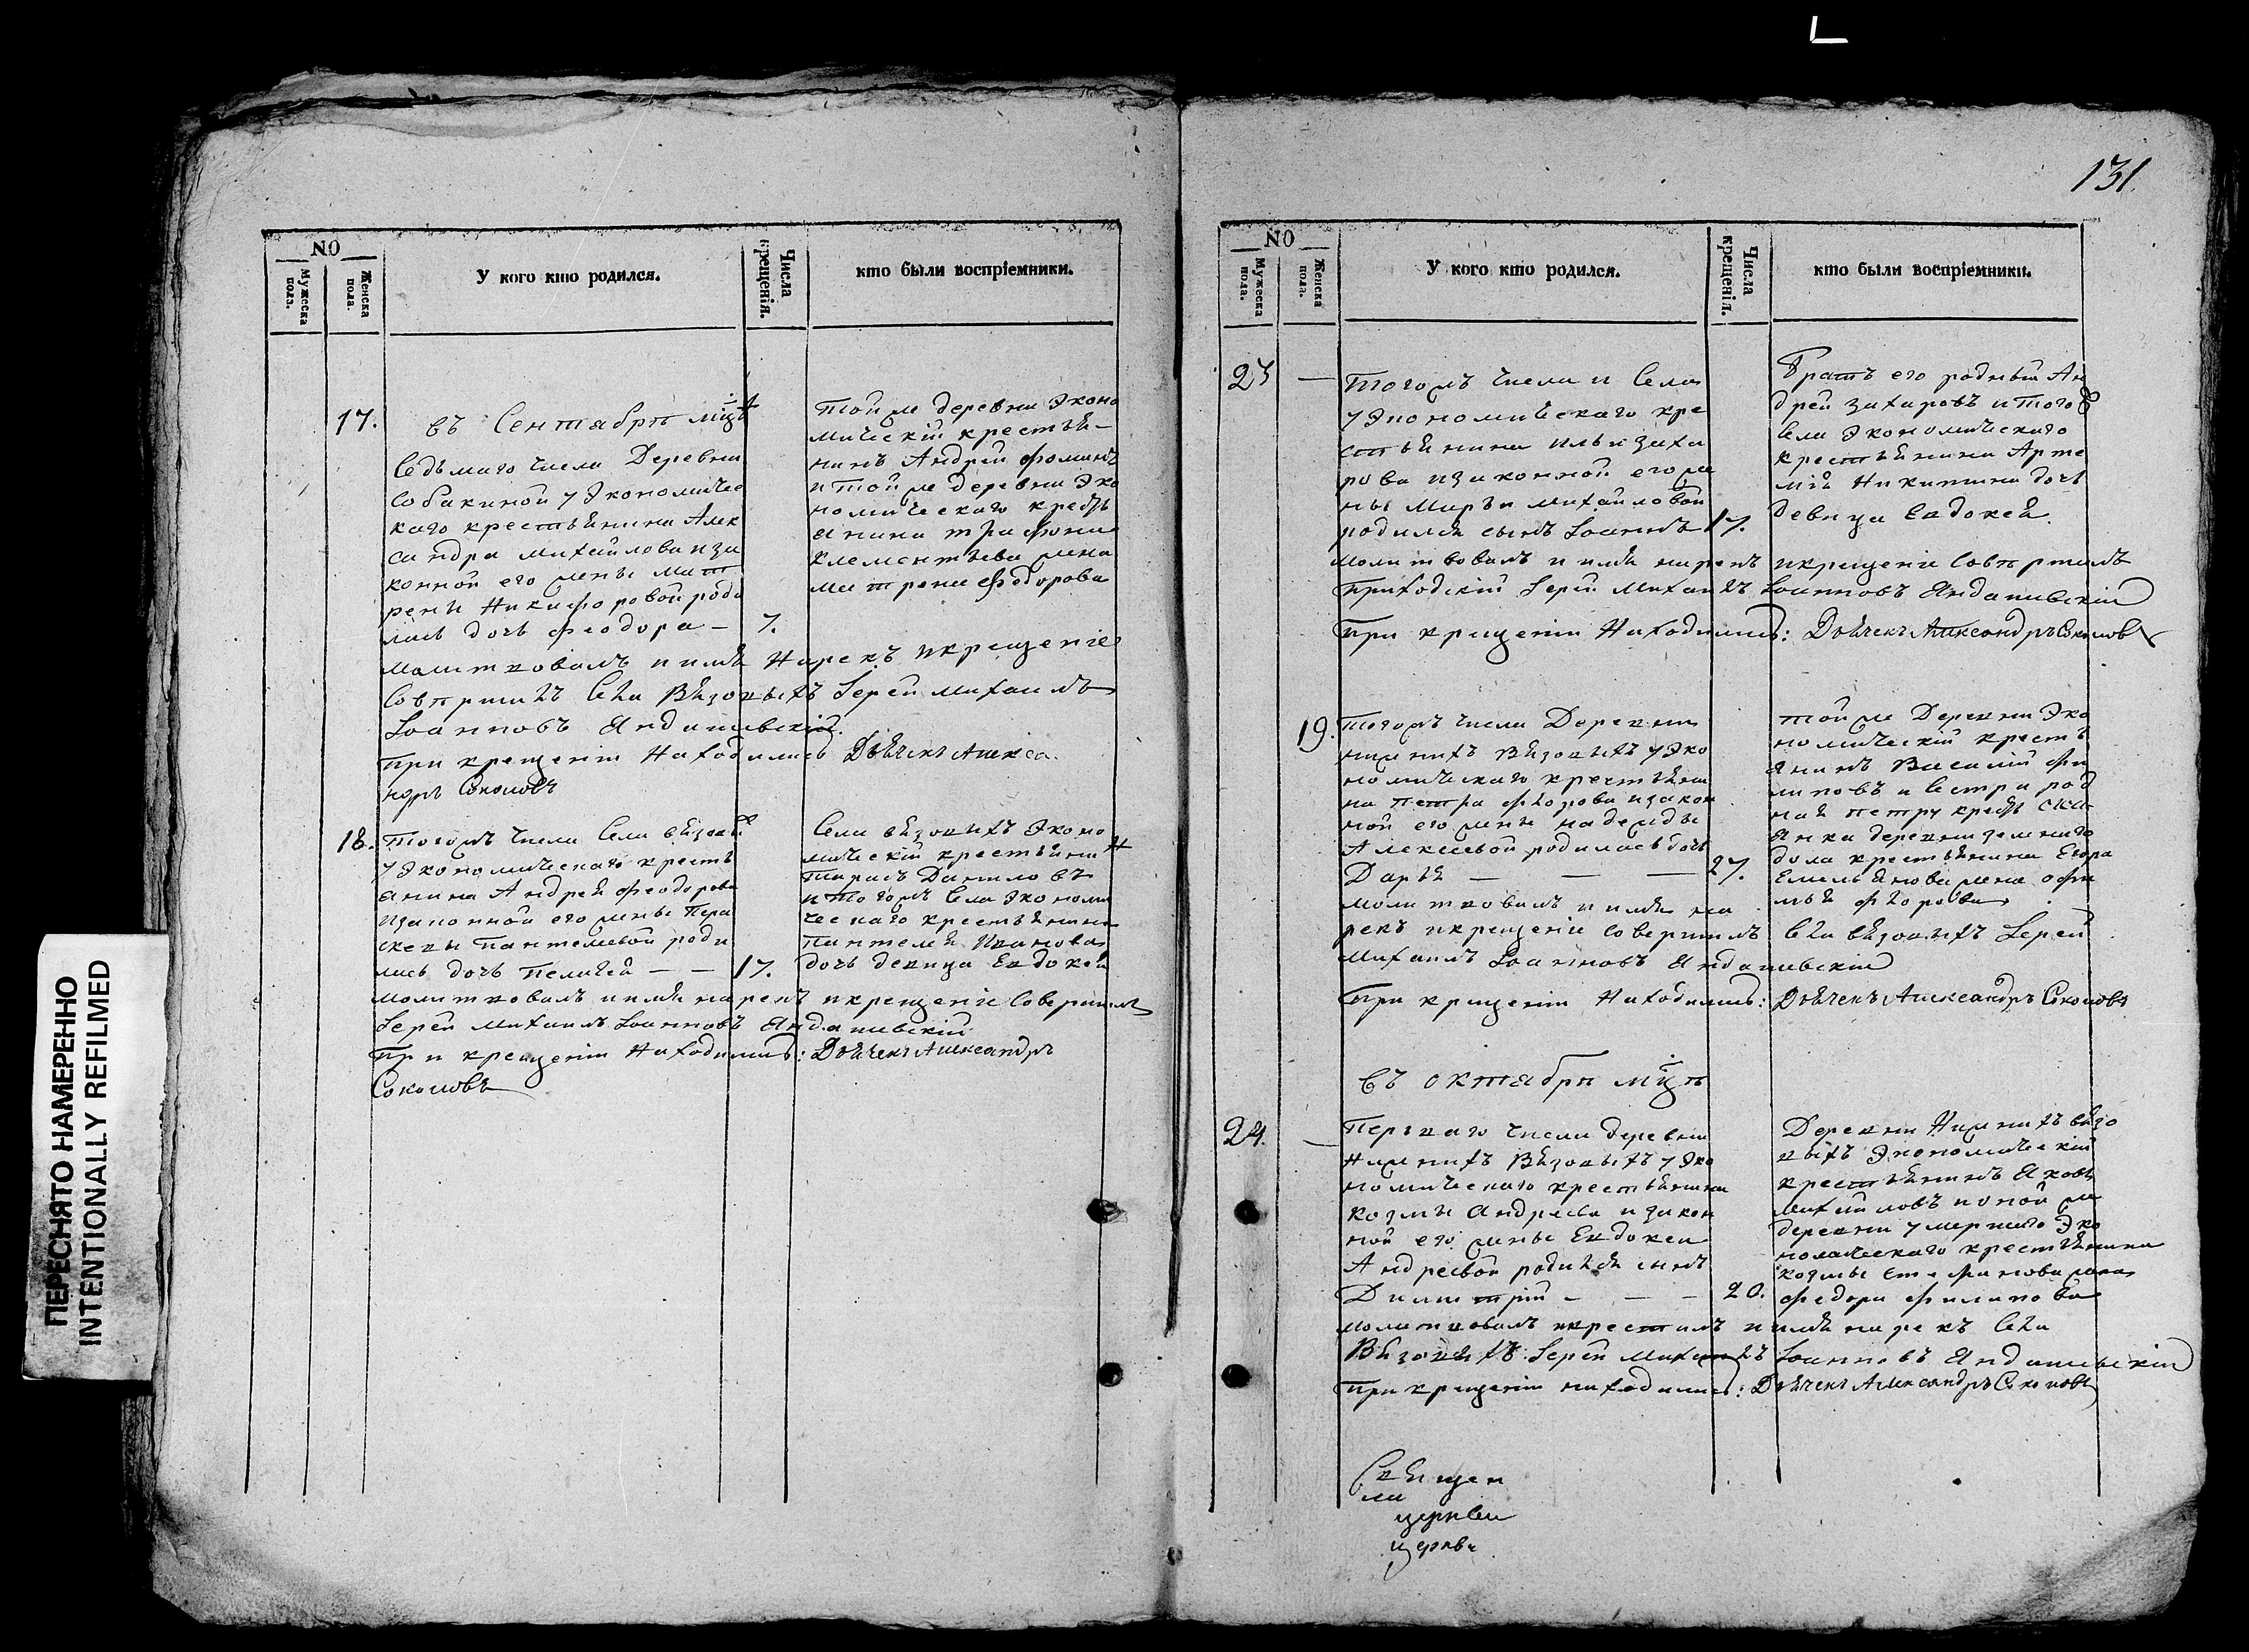 131.
NO
Мужеска пола.
Женска пола.
У кого кто родился.
Числа крещенія.
кто были воспріемники.
17.
въ Сентябрѣ мцѣ
Седьмаго числа Деревни
Собакиной у Экономичес
каго крестьянина Алек
сандра Михайлова и за
конной его жены Мат
рены Никифоровой роди
лась дочь Феодора —
7.
той же деревни Эконо
мическій крестья-
нинъ Андрей Фоминъ
и той же деревни Эко
номическаго кресть
янина Трифона
Клементьева жена
Матрена Федорова
молитвовалъ и имя Нарекъ и крещеніе
Совершилъ Села Вязовыхъ Іерей Михаилъ
Іоанновъ Яндашевскій.
При крещеніи Находились Дьячекъ Алекса
ндръ Соколовъ
18.
Тогожъ числа Села Вязовы
у Экономическаго кресть
янина Андрея Феодорова
и законной его жены Пара
скевы Пантелевой роди
лась дочь Пелагея — —
17.
Села Вязовыхъ Эконо
мическій крестьянин
Тарасъ Данило въ
и Тогожъ Села Экономи
ческаго крестьянина
Пантелея Иванова
дочь девица Евдокея
молитвовалъ и имя нарекъ и крещеніе Совершилъ
Іерей Михаилъ Іоанновъ Яндашевскій
При крещеніи Находились: Дьячекъ Александръ
Соколовъ
NO
Мужеска пола.
Женска пола.
У кого кто родился.
Числа крещенія.
кто были воспріемники.
23
—
Тогожъ числа и Села
у Экономическаго кре
стьянина Ильи Заха
рова и законной его же
ны Марьи Михайловой
родился сынъ Іоаннъ
17.
Братъ его родный Ан
дрей Захаровъ и того
Села Экономическаго
крестьянина Арте
мія Никитина дочь
девица Евдокея.
молитвовалъ и имя нарекъ и крещеніе Совершилъ
Приходскій Іерей Михаилъ Іоанновъ Яндашевскій
При крещеніи Находились: Дьячекъ Александръ Соколовъ
19.
Тогожъ числа Деревни
нижнихъ Вязовыхъ у Эко
номическаго крестьяни
на Петра Федорова и закон
ной его жены Надежды
Алексеевой родилась дочь
Дарья — — —
27.
той же Деревни Эко
номическій кресть
янинъ Василій Фи
липовъ и Сестра род
ная Петру
деревни
дола крестьянина Егора
Емельянова жена
Федорова
молитвовалъ и имя на
рекъ и крещеніе Совершилъ Села Вязовыхъ Іерей
Михаилъ Іоанновъ Яндашевскій
При крещеніи Находились: Дьячекъ Александръ Соколовъ
въ Октябрѣ мцѣ
24.
—
Перваго числа деревни
Нижнихъ Вязовыхъ у Эко
номическаго крестьянина
Козмы Андреева и закон
ной его жены Евдокеи
Андреевой родился сынъ
Димитрій — — —
20.
Деревни Нижнихъ Вязо
выхъ Экономическій
крестьянинъ Яковъ
Михайловъ и той же
деревни умершаго Эко
номическаго крестьянина
Козмы Степанова жена
Федора Филипова
молитвовалъ и крестилъ и имя нарекъ Села
Вязовыхъ Іерей Михаилъ Іоанновъ Яндашевскій
При крещеніи находились: Дьячекъ Александръ Соколовъ
Священ
ли
церкви
церкве
ПЕРЕСНЯТО НАМЕРЕННО
INTENTIONALLY REFILMED